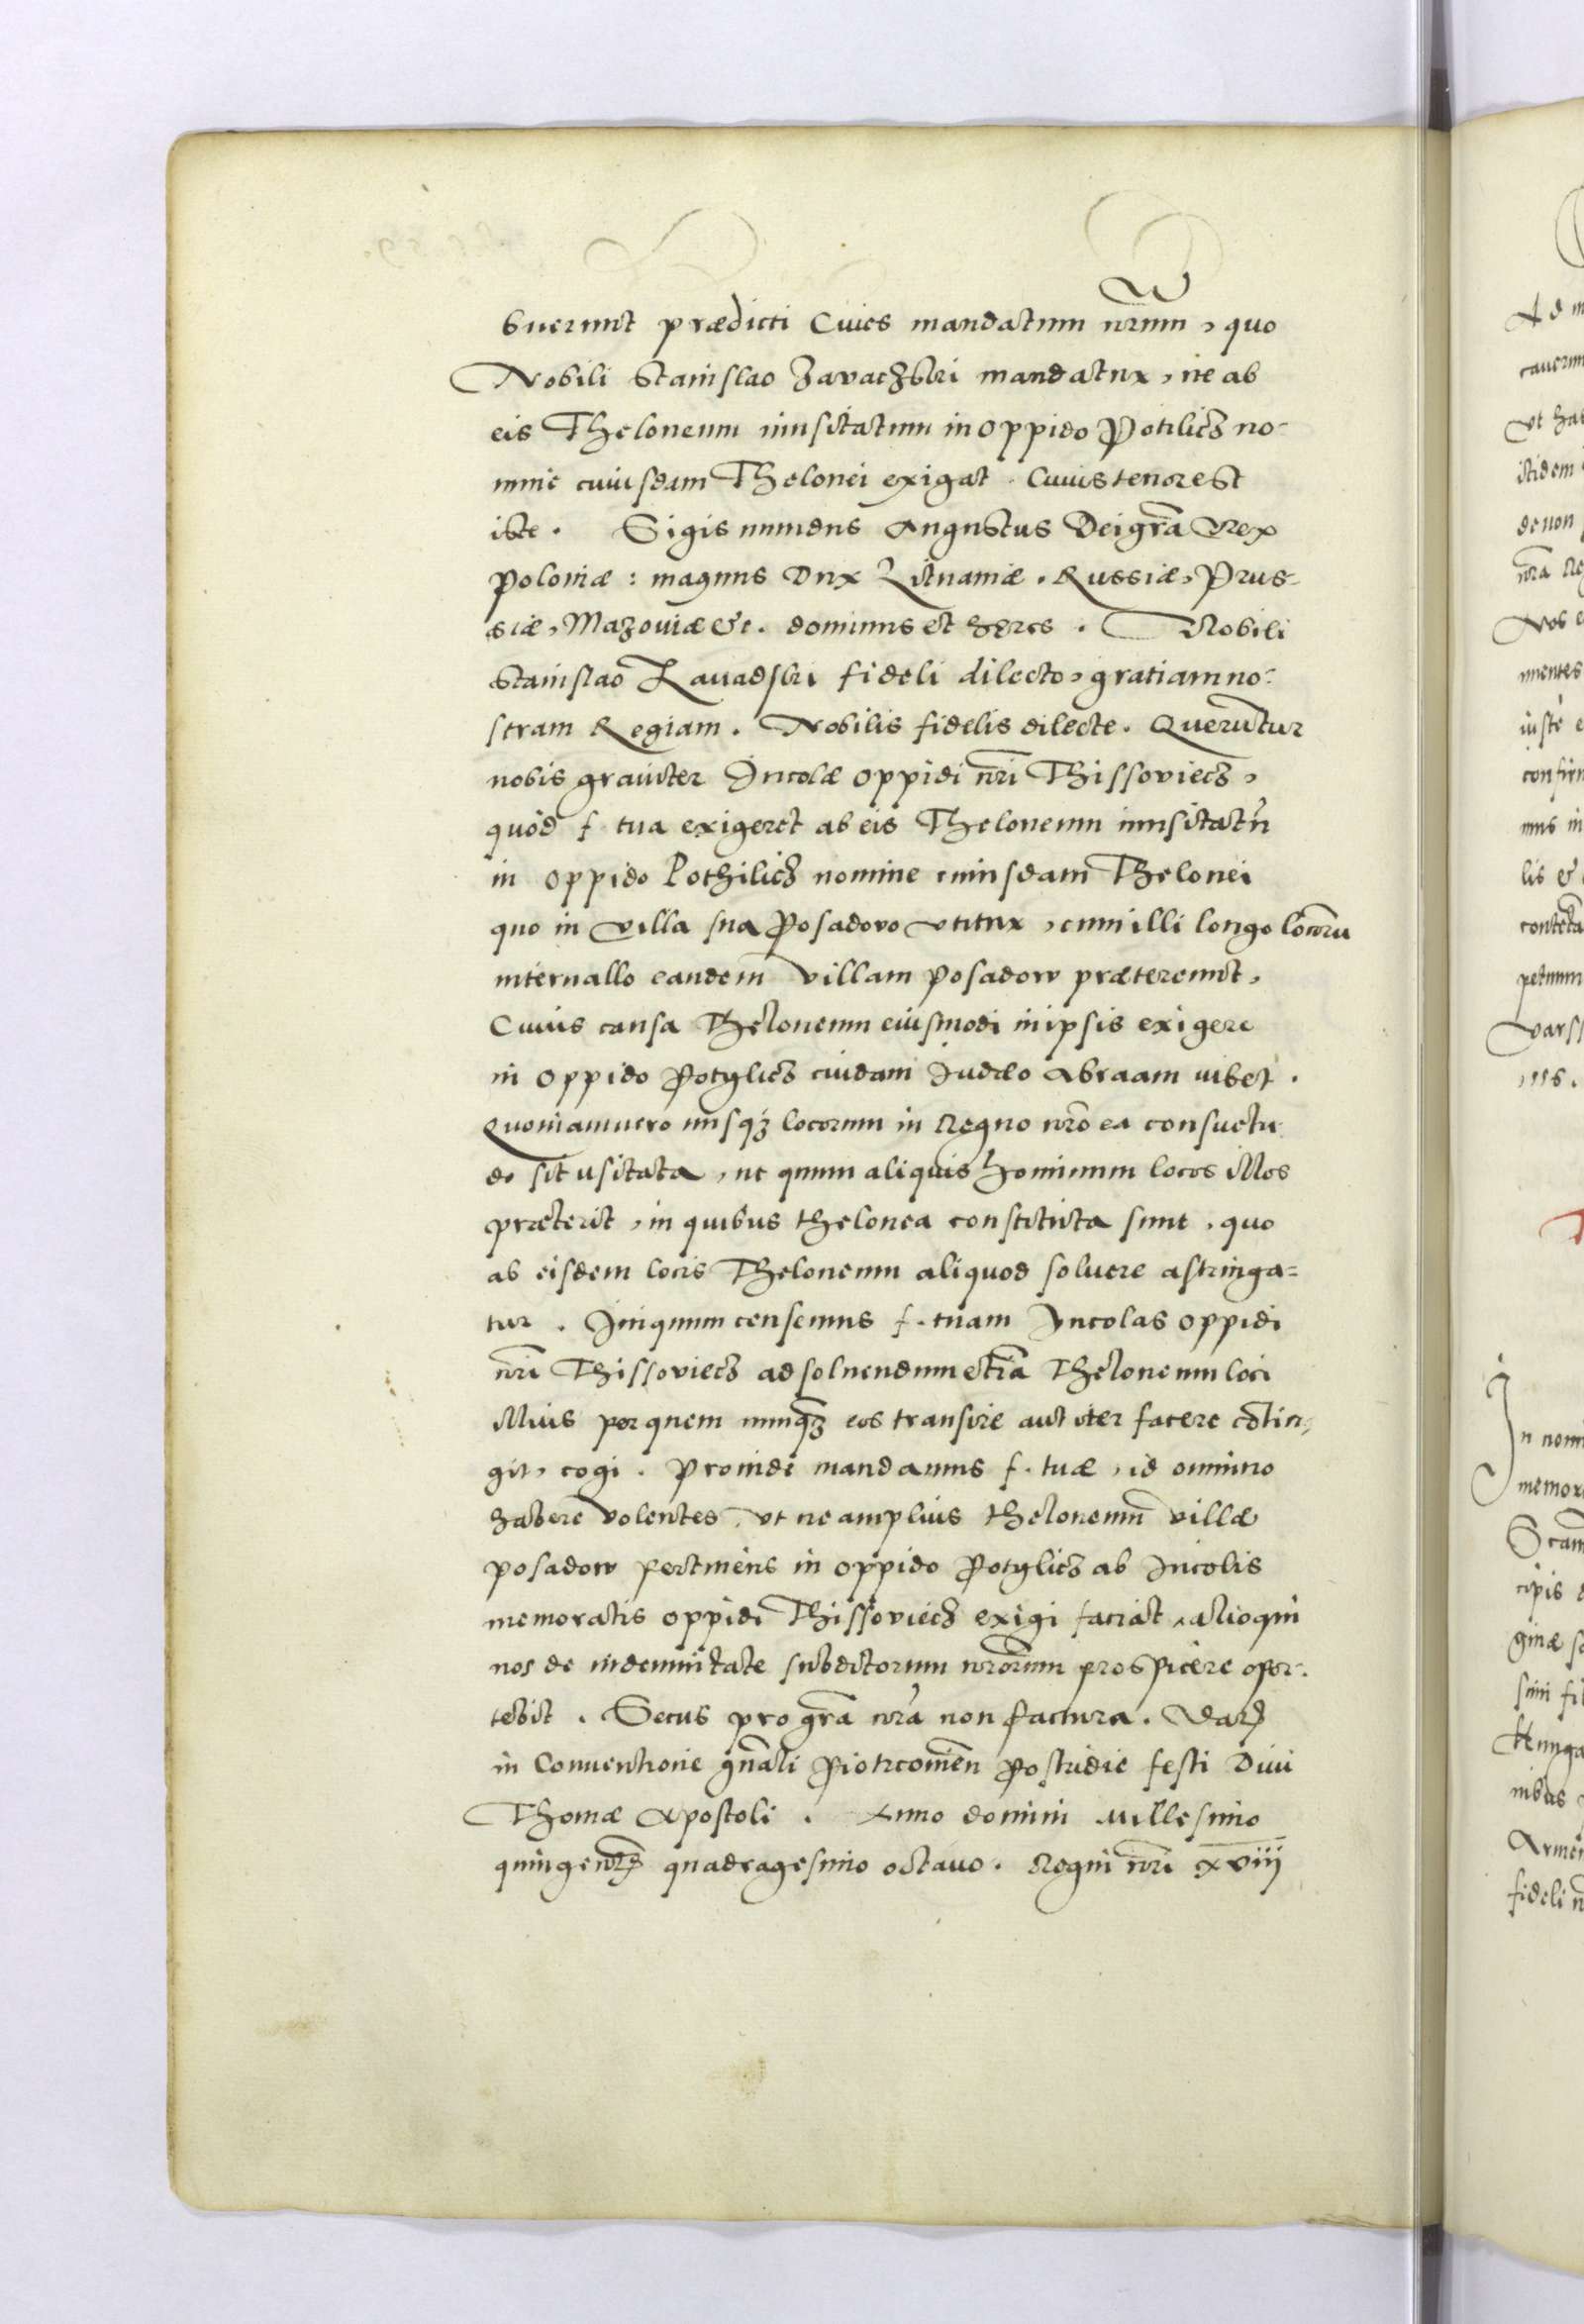 buerunt prædicti Ciues mandatum nr̃um, quo
Nobili Stanislao Zavaczski mandatur, ne ab
eis Theloneum inusitatum in oppido Potilicz no-
mine cuiusdam Thelonei exigat. Cuius tenor est
iste. Sigismundus Augustus Dei gr̃a Rex
Poloniæ: magnus Dux Lituaniæ. Russiæ, Prus-
siæ, Mazoviæ &c. dominus et heres. Nobili
Stanislao Zauadski fideli dilecto, gratiam no-
stram Regiam. Nobilis fidelis dilecte. Queruntur
nobis grauiter Incolæ oppidi nr̃i Thissoviecz,
quòd f. tua exigeret ab eis Theloneum inusitatũ
in oppido Pothilicz nomine cuiusdam Thelonei
quo in villa sua Posadovo vtitur, cum illi longo locorũ
interuallo eandem villam Posadow prætereunt,
Cuius causa Theloneum eiusmodi in ipsis exigere
in oppido Potylicz cuidam Judæo Abraam iubet.
Quoniam uero nusq̃ locorum in Regno nr̃o ea consuetu
do sit usitata, ut quum aliquis hominum locos illos
præterit, in quibus thelonea constituta sunt, quo
ab eisdem locis Theloneum aliquod soluere astringa=
tur. Iniquum censemus f. tuam Incolas oppidi
nr̃i Thissoviecz ad soluendum etiã Theloneum loci
illius per quem nunq̃ eos transire aut iter facere cõtin-
git, cogi. Proinde mandamus f. tuæ, id omnino
habere volentes, vt ne amplius theloneum villæ
Posadow pertinens in oppido Potylicz ab Incolis
memoratis oppidi Thissoviecz exigi faciat, alioqui
nos de indemnitate subditorum nr̃orum prospicere opor-
tebit. Secus pro gr̃a nr̃a non factura. Dat̃
in Conuentione gñali Piotrcouieñ Postridie festi Diui
Thomæ Apostoli. Anno domini Millesimo
quingent̃ quadragesimo octauo. Regni nr̃i xviii